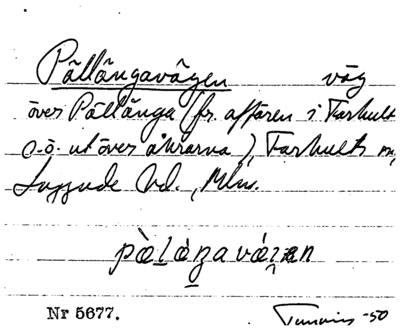 Pållångavägen väg
över Pållånga (fr. affären i Farhult
s.ö. ut över åkrarna), Farhults sn,
Luggude hd., Mlm.
Nr 5677. -50